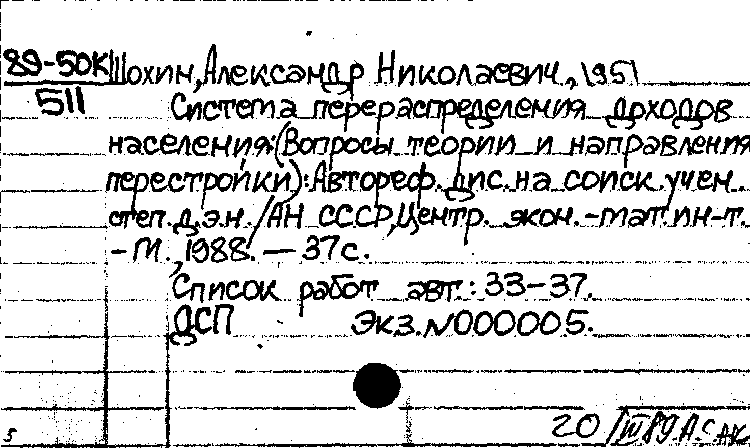 89-50К Шохин, Александр Николаевич, 1951
511 Система перераспределения доходов
населения: (Вопросы теории и направления
перестройки): Автореф. дис. на соиск. учен.
степ. д.э.н. / АН СССР, Центр. экон.-мат. ин-т.
- М., 1988. — 37 с.
Список работ авт.: 33-37.
ДСП Экз. N 000005.
5 20/III 89 А.С.